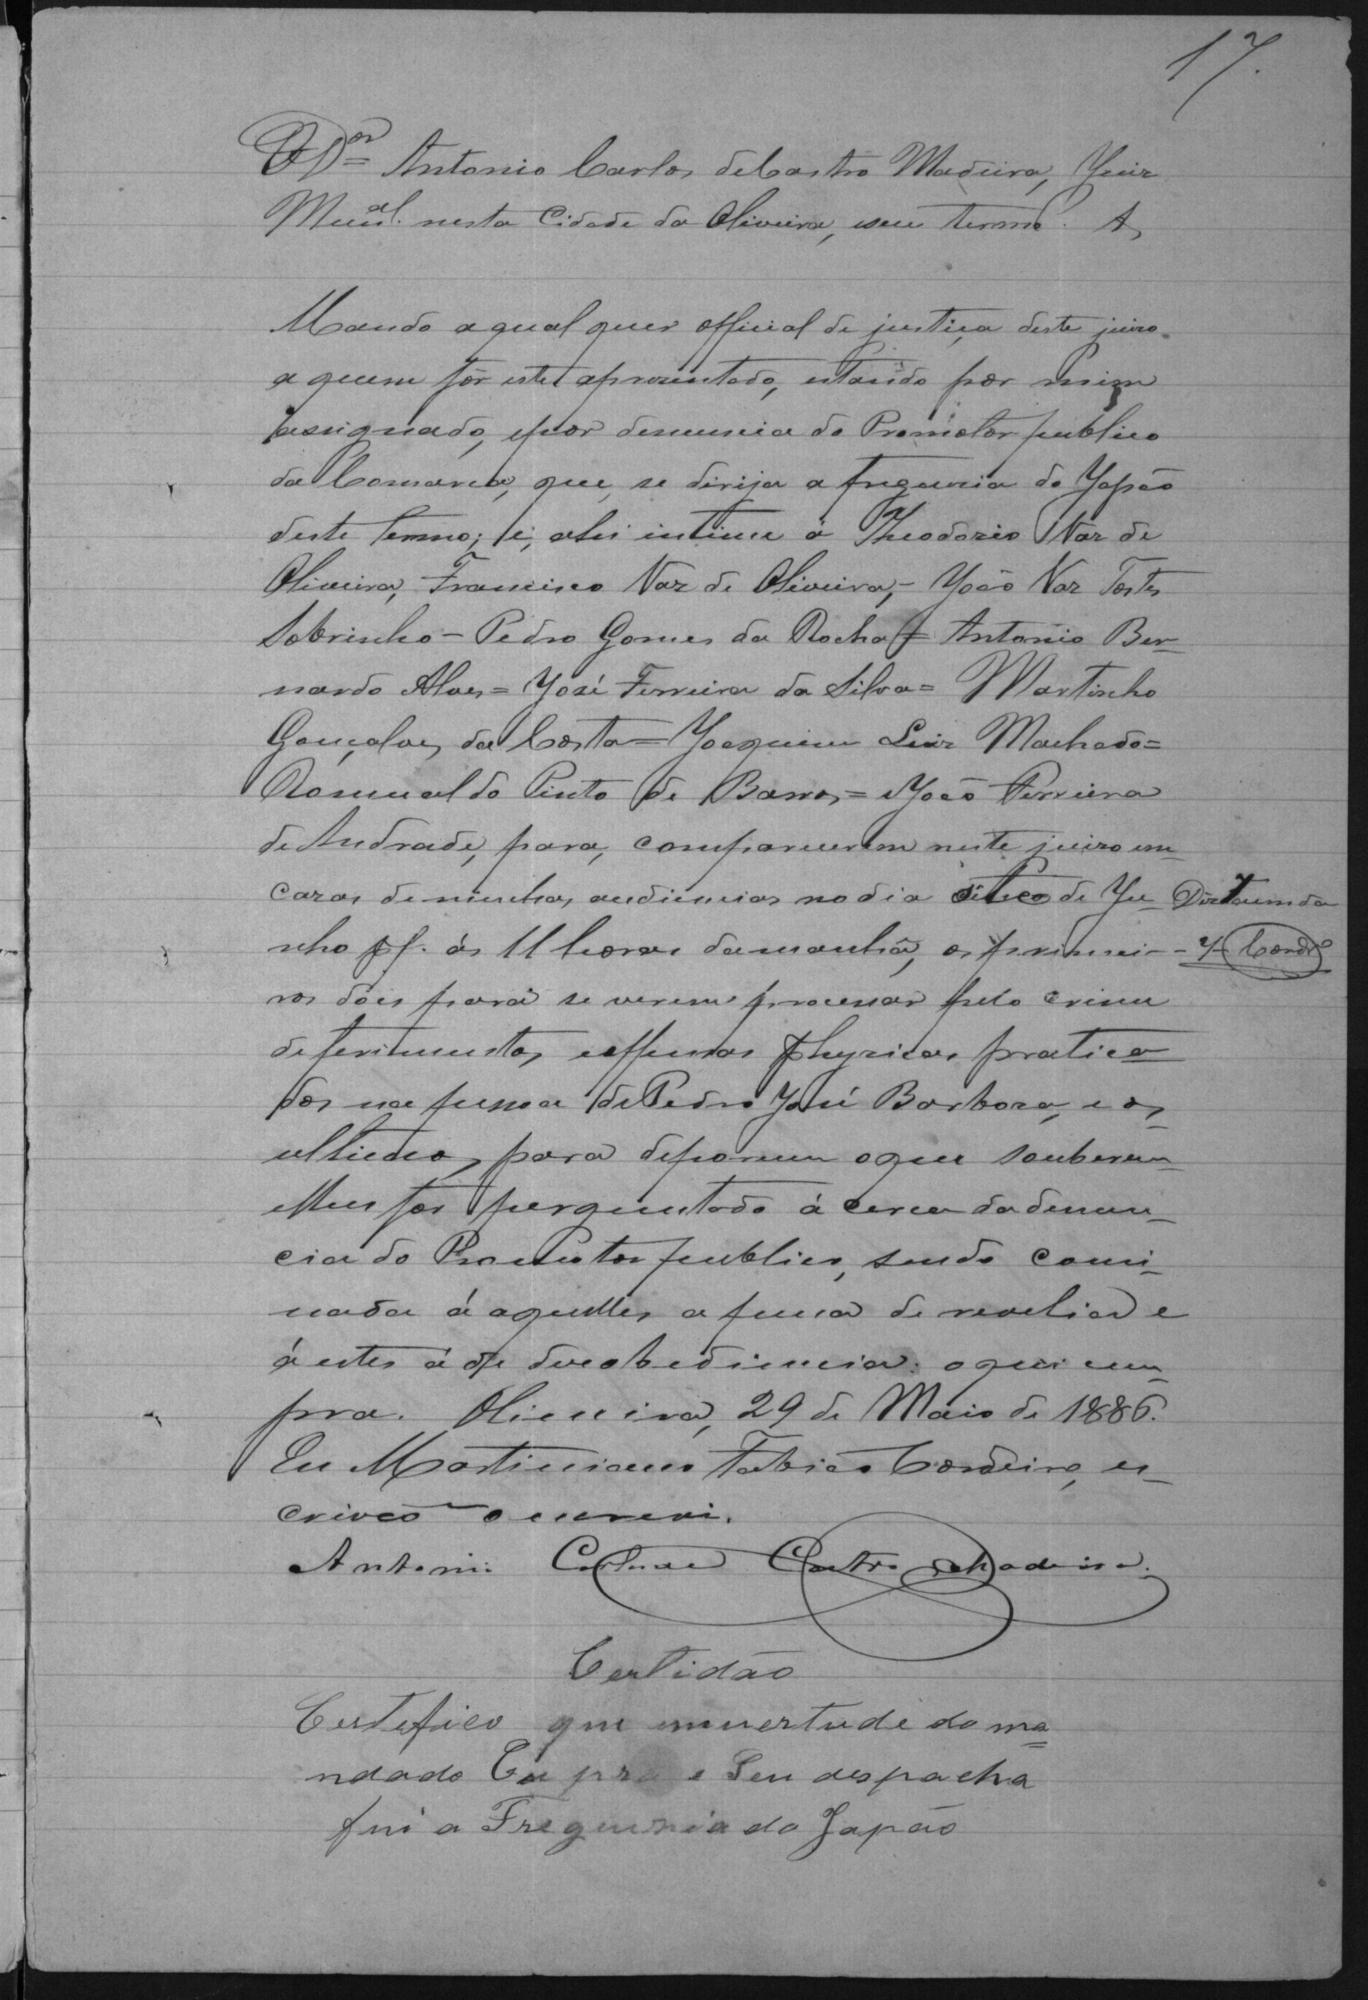 17.
O Dor= Antonio Carlos de Castro Madeira, Juiz
Munal. nesta Cidade da Oliveira, e seu termo. &
Mando a qual quer official de justiça deste juizo
a quem fôr este apresentado, estando por mim
assignado, e por denuncia do Promotor publico
da Comarca, que, se dirija a freguezia do Japão
deste termo; e, ahi intime á Theodozio Vaz de
Oliveira, Francisco Vaz de Oliveira,- João Vaz Tostes
Sobrinho - Pedro Gomes da Rocha = Antonio Ber-
nardo Alves = José Ferreira da Silva = Martinho
Gonçalves da Costa = Joaquim Luiz Machado =
Romualdo Pinto de Barros, = e João Ferreira
de Andrade, para, comparecerem neste juizo em
caza de minhas audiencias no dia de Ju-
nho pf. ás 11 horas da manhã, os primei-
ros dois para se verem processar pelo crime
de ferimentos, e offensas physicas pratica
dos na pessoa de Pedro José Barboza, e os
ultimos, para deporem o que souberem
e lhes for perguntado á cerca da denun-
cia do Promotor publico, sendo comi-
nada á aquelles a pena de revelia e
á estes á de desobediencia. o que cum-
pra. Oliveira, 29 de Maio de 1886.
Eu Martiniano Fabião Cordeiro, es-
crivão o escrevi.
Antonio Carlos de Castro Madeira.
Certidão
Certefico que emvertude do ma
ndado e Seu despacha
fui a Freguezia do Japão